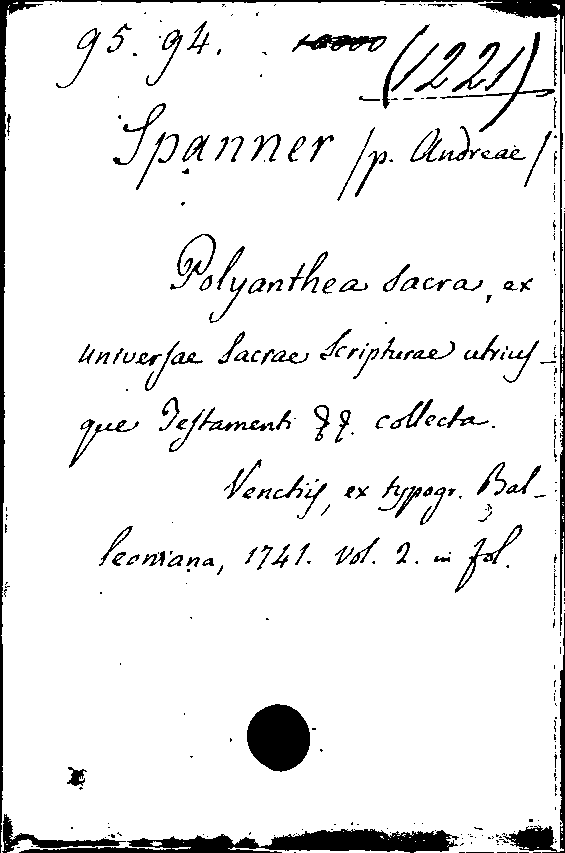 95. 94. (1221)
Spanner /p. Andreae/
Polyanthea Sacra, ex
universae Sacrae Scripturae utrius-
que Testamenti &&. collecta.
Venetiis, ex typogr. Bal-
leoniana, 1741. Vol. 2. in fol.